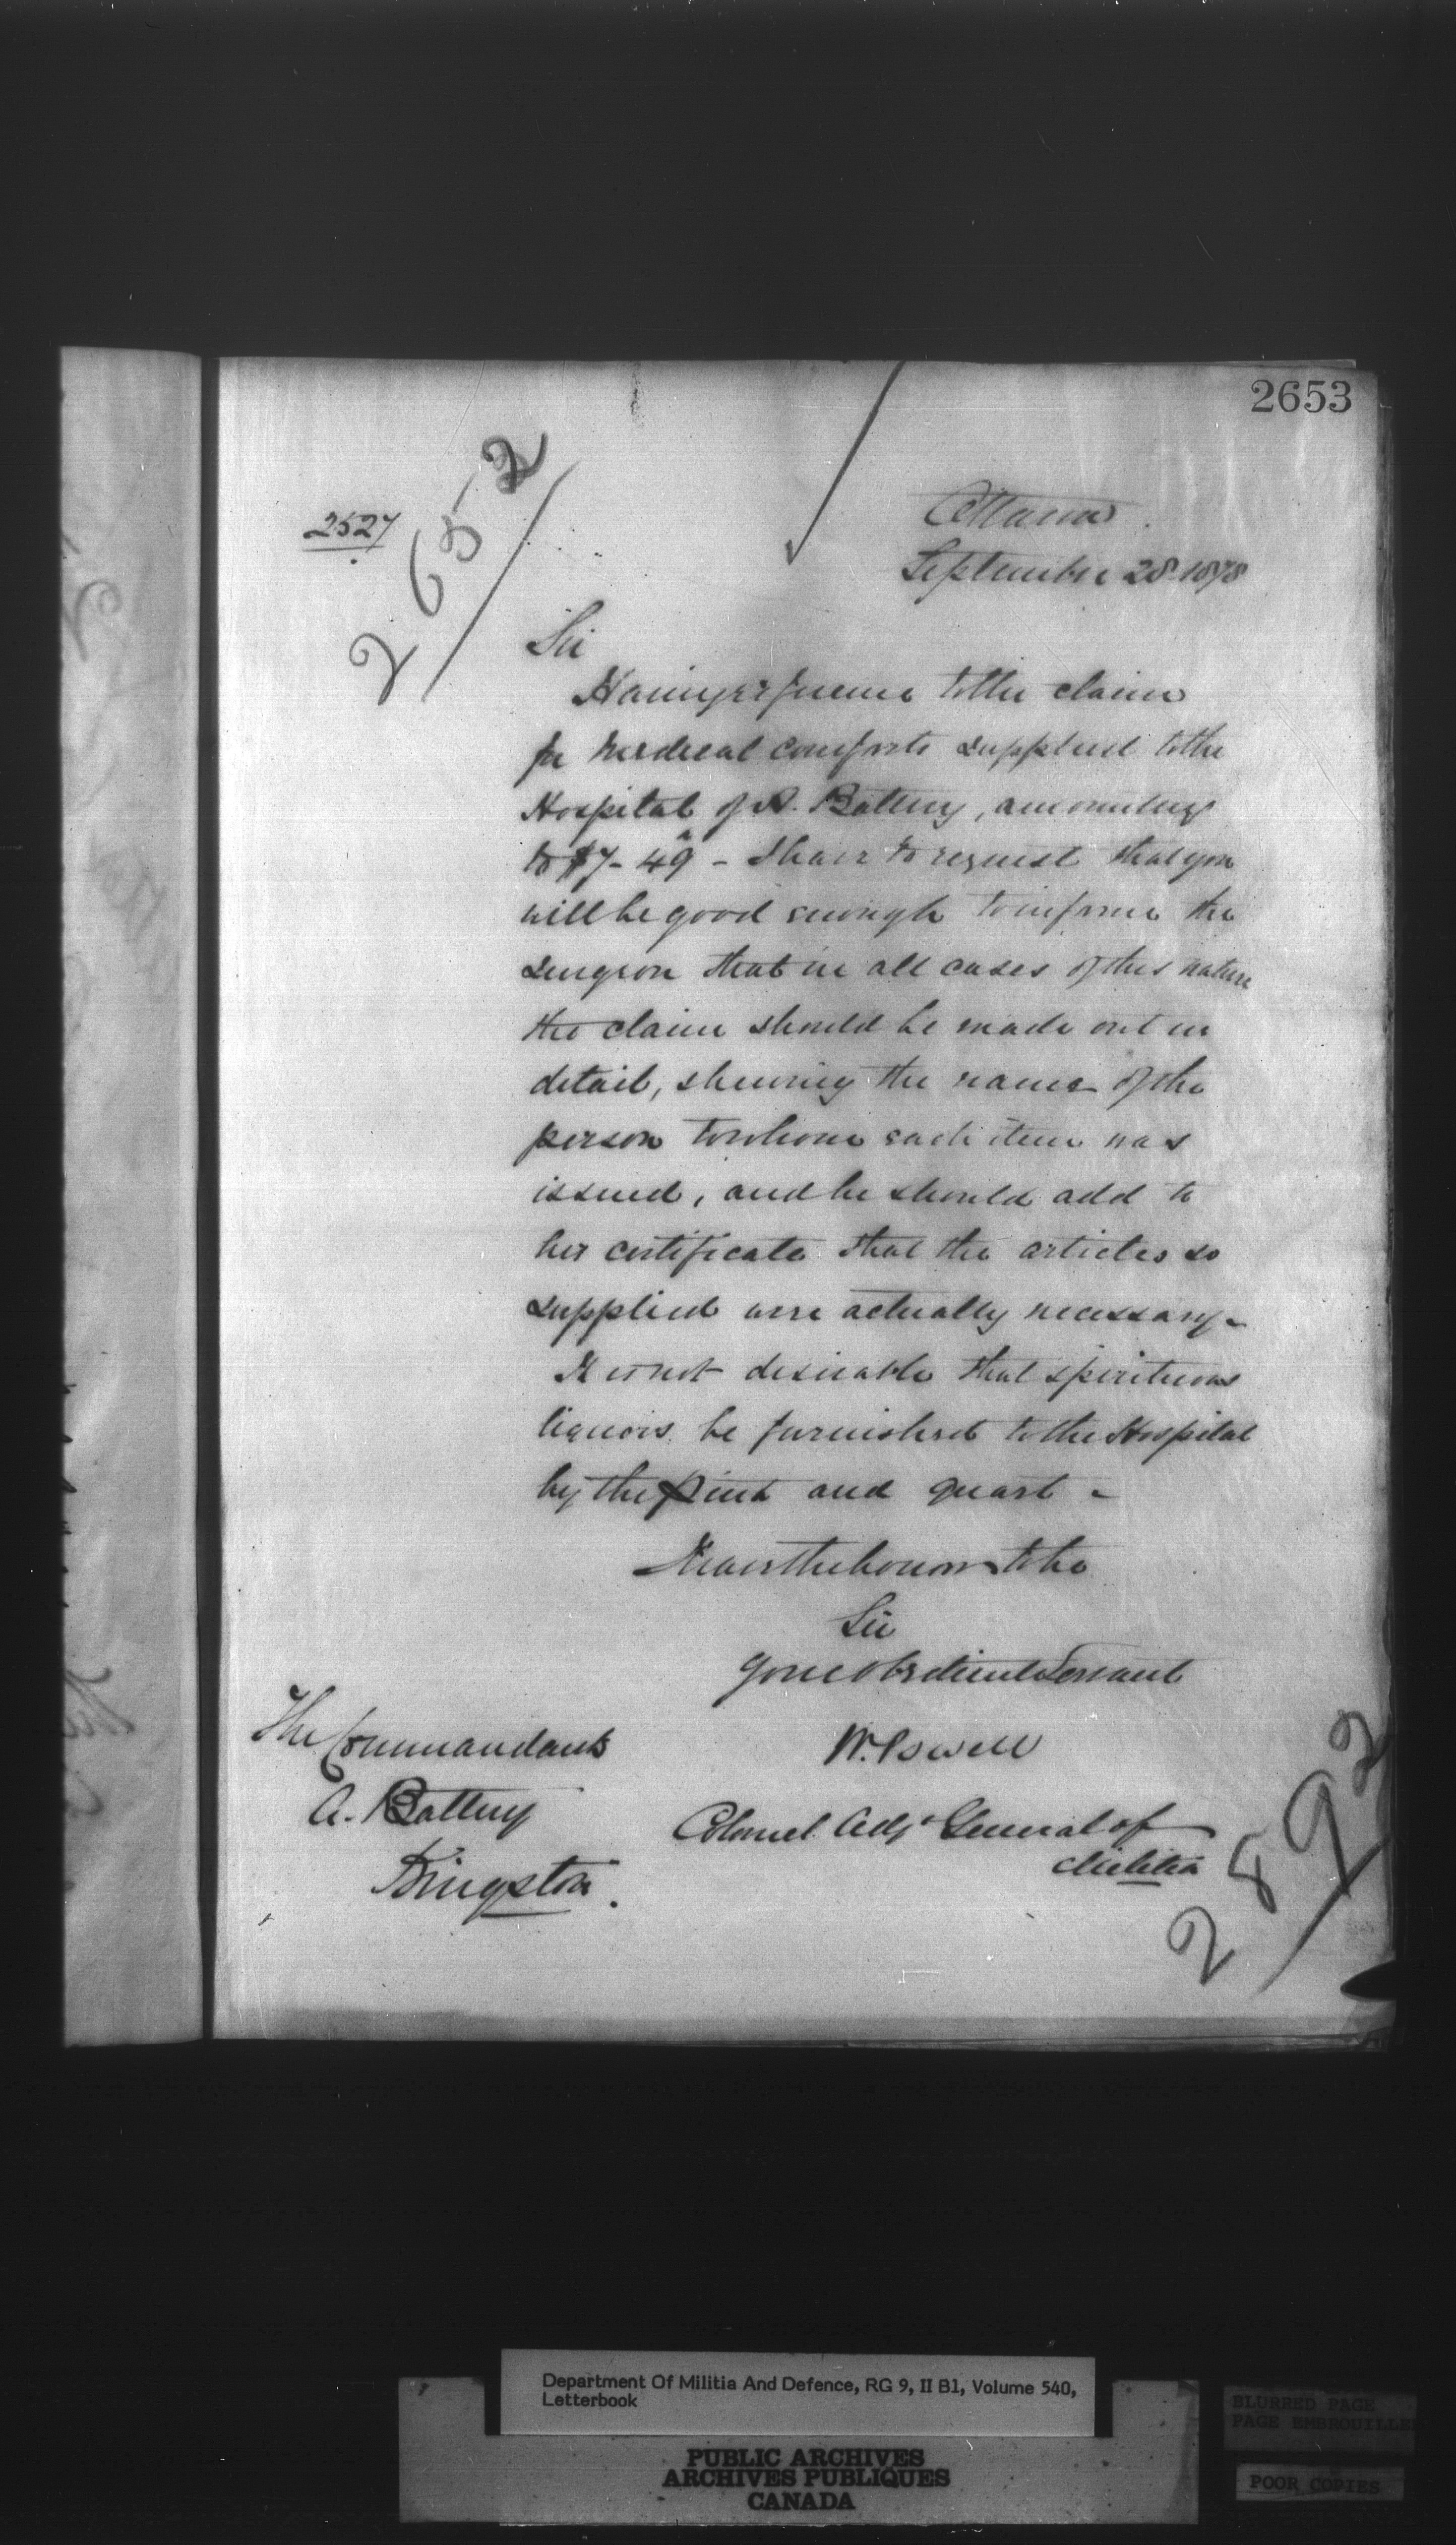 2653
2527
2652
Ottawa
September 28. 1878
Sir
Having reference to the claim
for Medical comforts supplied to the
Hospital of A. Battery, amounting
to $7-49 - I have to request that you
will be good enough to inform the
Surgeon that in all cases of this nature
the claim should be made out in
detail, shewing the name of the
person to whom each item was
issued, and he should add to
his certificate that the articles so
supplied were actually necessary-
It is not desirable that spirituous
liquors be furnished to the Hospital
by the pint and quart -
I have the honor to be
Sir
Your obedient Servant
W. Powell
Colonel Adjt General of
Militia
The Commandant
A. Battery
Kingston.
2892
Department Of Militia And Defence, RG 9, II B1, Volume 540,
Letterbook
PUBLIC ARCHIVES
ARCHIVES PUBLIQUES
CANADA
BLURRED PAGE
PAGE EMBROUILLE
POOR COPIES